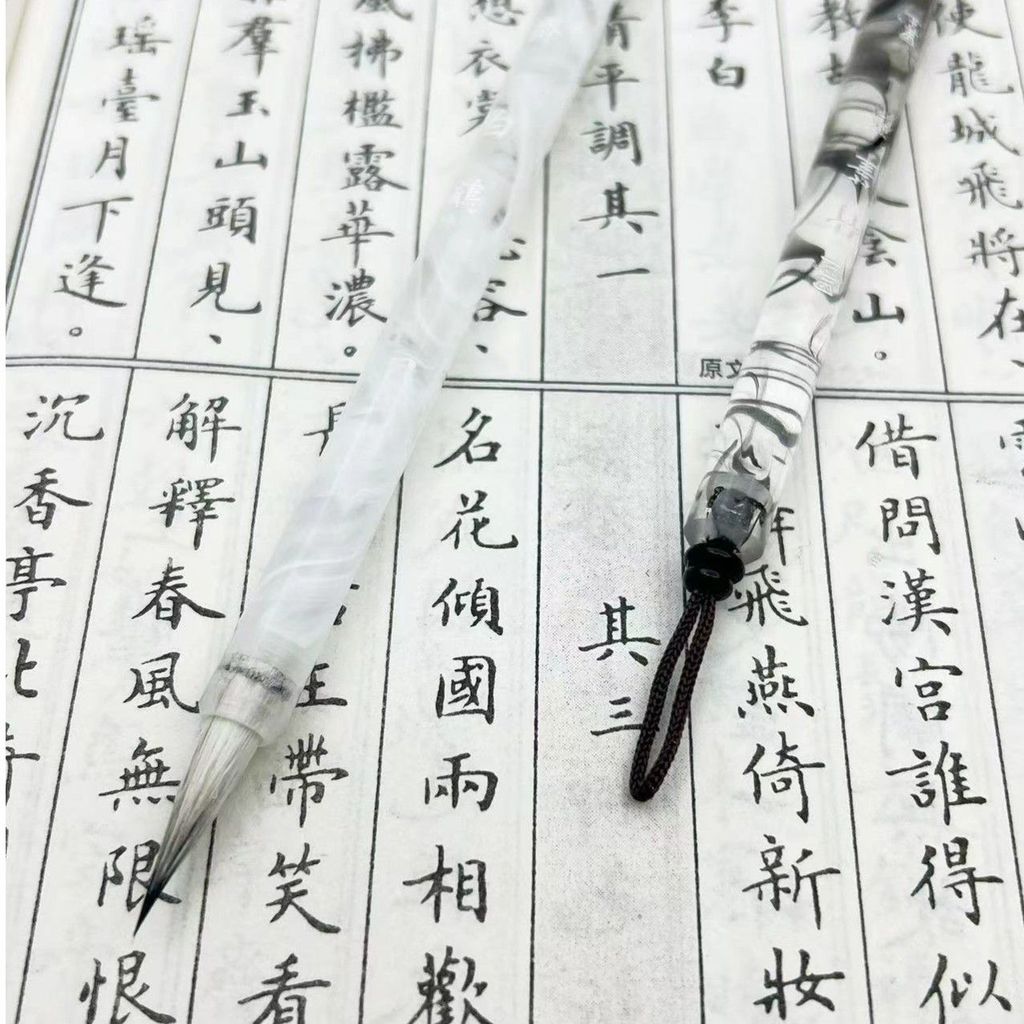 使龍城飛將在、
教 陰山。
李白
原文
清平調其一
想衣裳 容、
風拂檻露華濃。
羣玉山頭見、
瑤臺月下逢。
借問漢宮誰得似
飛燕倚新妝
其三
名花傾國兩相歡
王帶笑看
解釋春風無限恨
沉香亭北